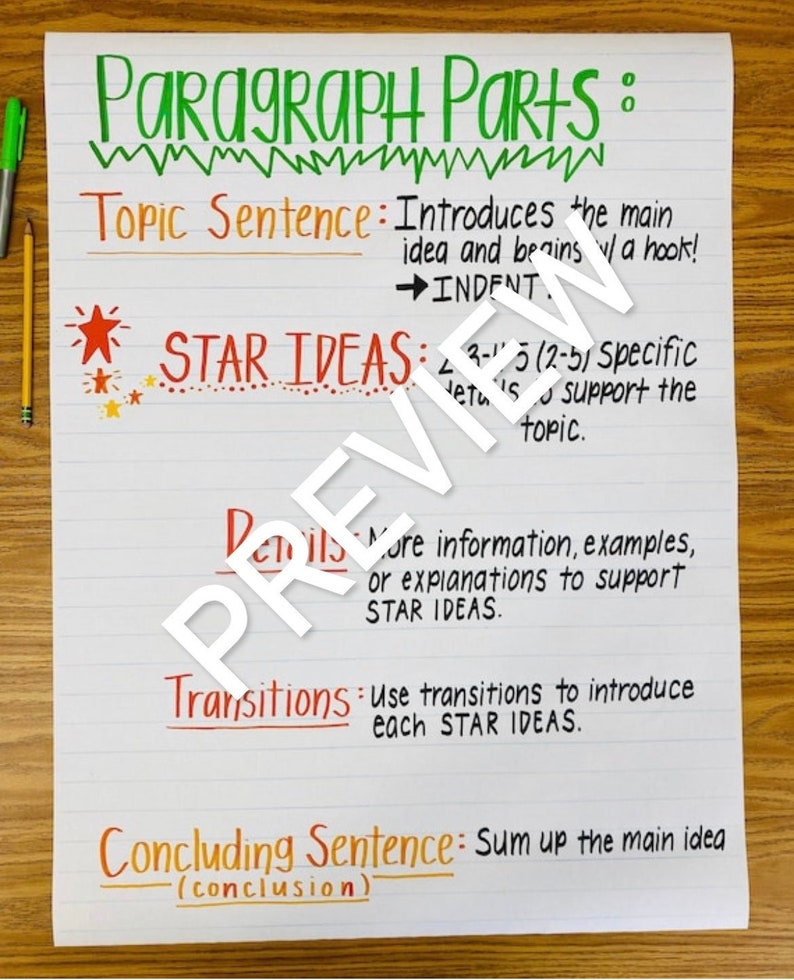 Paragraph Parts:
Topic Sentence: Introduces the main
idea and begins w/ a hook!
→ INDENT
STAR IDEAS: (2-5) Specific
details to support the
topic.
Details: More information, examples,
or explanations to support
STAR IDEAS.
Transitions: Use transitions to introduce
each STAR IDEAS.
Concluding Sentence: Sum up the main idea
(conclusion)
PREVIEW